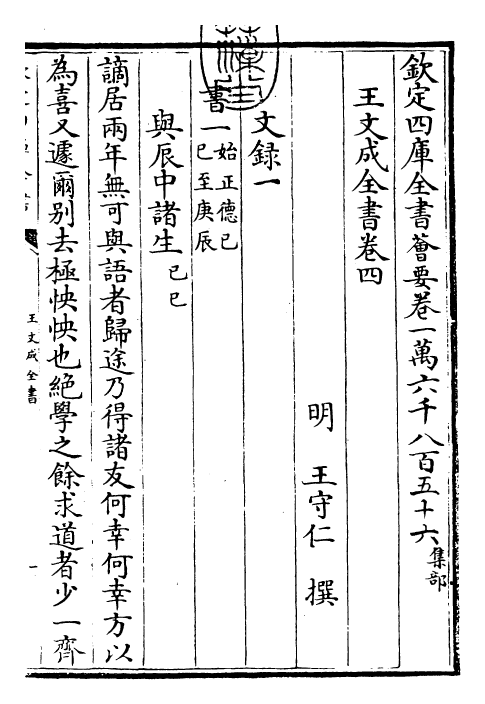 欽定四庫全書薈要卷一萬六千八百五十六集部
王文成全書卷四
明　王守仁　撰
文録一
書一始正德己巳至庚辰
與辰中諸生己巳
謫居兩年無可與語者歸途乃得諸友何幸何幸方以
為喜又遽爾别去極怏怏也絶學之餘求道者少一齊
王文成全書
一